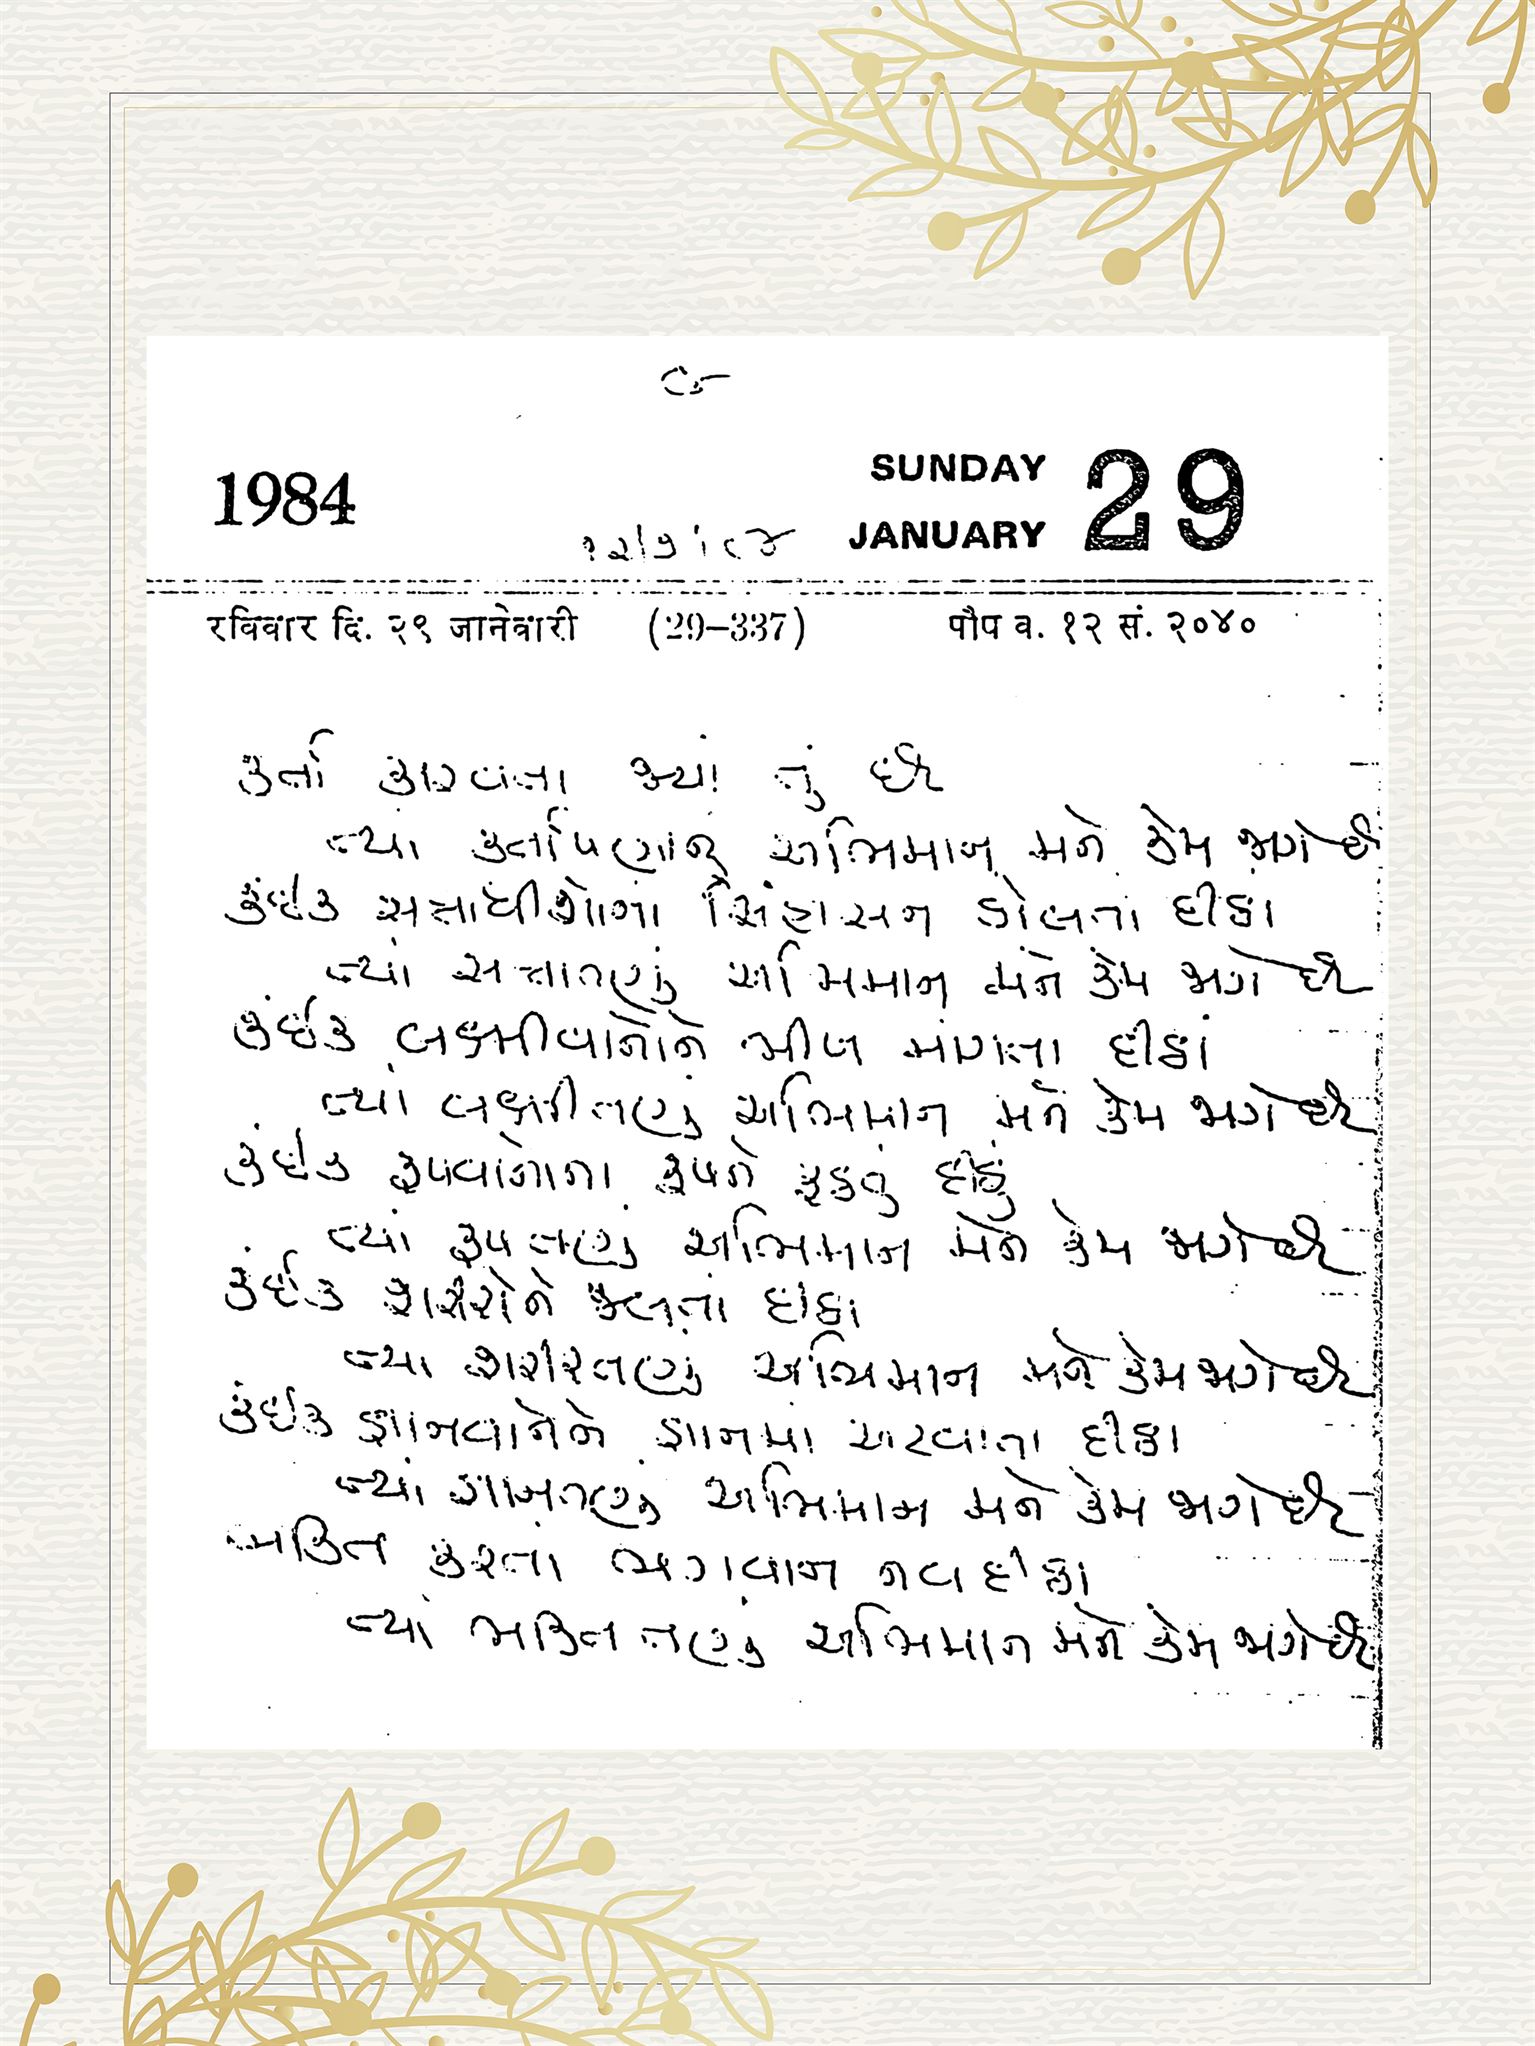 1984
SUNDAY 29
JANUARY
૧૨/૭/૮૪
रविवार दि. २९ जानेवारी (29–337) पौष व. १२ सं. २०४०
કર્તા કારવતા જ્યાં તું છે
ત્યાં કર્તાપણાનું અભિમાન મને કેમ જાગે છે
કંઈક સત્તાધીશોના સિંહાસન ડોલતા દીઠા
ત્યાં સત્તાતણું અભિમાન મને કેમ જાગે છે
કંઈક લક્ષ્મીવાનોને ભીખ માંગતા દીઠાં
ત્યાં લક્ષ્મીતણું અભિમાન મને કેમ જાગે છે
કંઈક રૂપવાનોના રૂપને દીઠું
ત્યાં રૂપતણું અભિમાન મને કેમ જાગે છે
કંઈક શરીરોને દીઠા
ત્યાં શરીરતણું અભિમાન મને કેમ જાગે છે
કંઈક જ્ઞાનવાનોને જ્ઞાનમાં અટવાતા દીઠા
ત્યાં જ્ઞાનતણું અભિમાન મને કેમ જાગે છે
ભક્તિ કરતાં ભગવાન નવ દીઠા
ત્યાં ભક્તિતણું અભિમાન મને કેમ જાગે છે